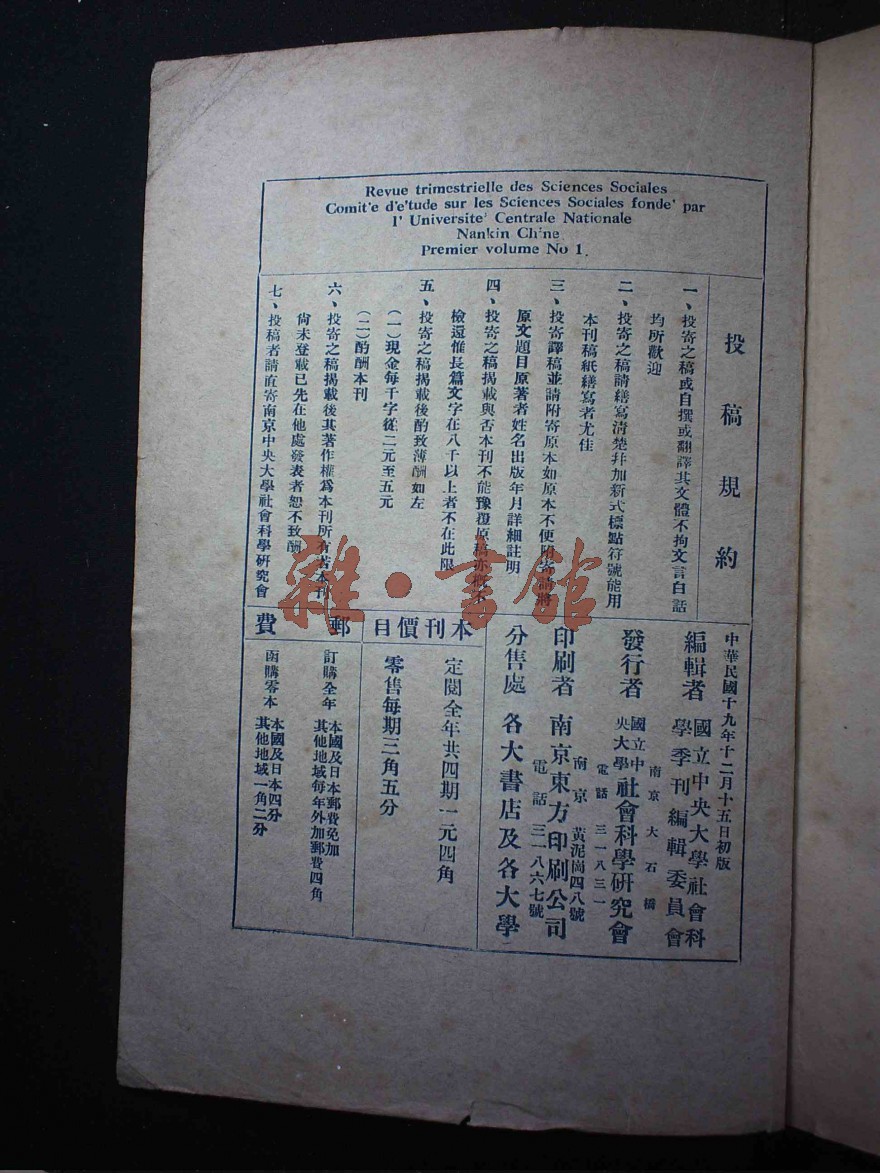 Revue trimestrielle des Sciences Sociales
Comit'e d'e'tude sur les Sciences Sociales fonde' par
l' Universite' Centrale Nationale
Nankin Ch'ne
Premier volume No 1.
投稿規約
一、投寄之稿或自撰或翻譯其文體不拘文言白話
均所歡迎
二、投寄之稿請繕寫清楚幷加新式標點符號能用
本刊稿紙繕寫者尤佳
三、投寄譯稿並請附寄原本如原本不便附寄請將
原文題目原著者姓名出版年月詳細註明
四、投寄之稿揭載與否本刊不能豫覆原稿亦概不
檢還惟長篇文字在八千以上者不在此限
五、投寄之稿揭載後酌致薄酬如左
(一)現金每千字從二元至五元
(二)酌酬本刊
六、投寄之稿揭載後其著作權爲本刊所有若本刊
尙未登載已先在他處發表者恕不致酬
七、投稿者請直寄南京中央大學社會科學硏究會
中華民國十九年十二月十五日初版
編輯者 國立中央大學社會科
學季刊編輯委員會
南京大石橋
發行者 國立中央大學社會科學硏究會
電話 三一八三一
南京 黃泥崗四八號
印刷者 南京東方印刷公司
電話 三一八六七號
分售處 各大書店及各大學
本刊價目
定閱全年共四期一元四角
零售每期三角五分
郵費
訂購全年 本國及日本郵費免加
其他地域每年外加郵費四角
函購零本 本國及日本四分
其他地域一角二分
雜·書館